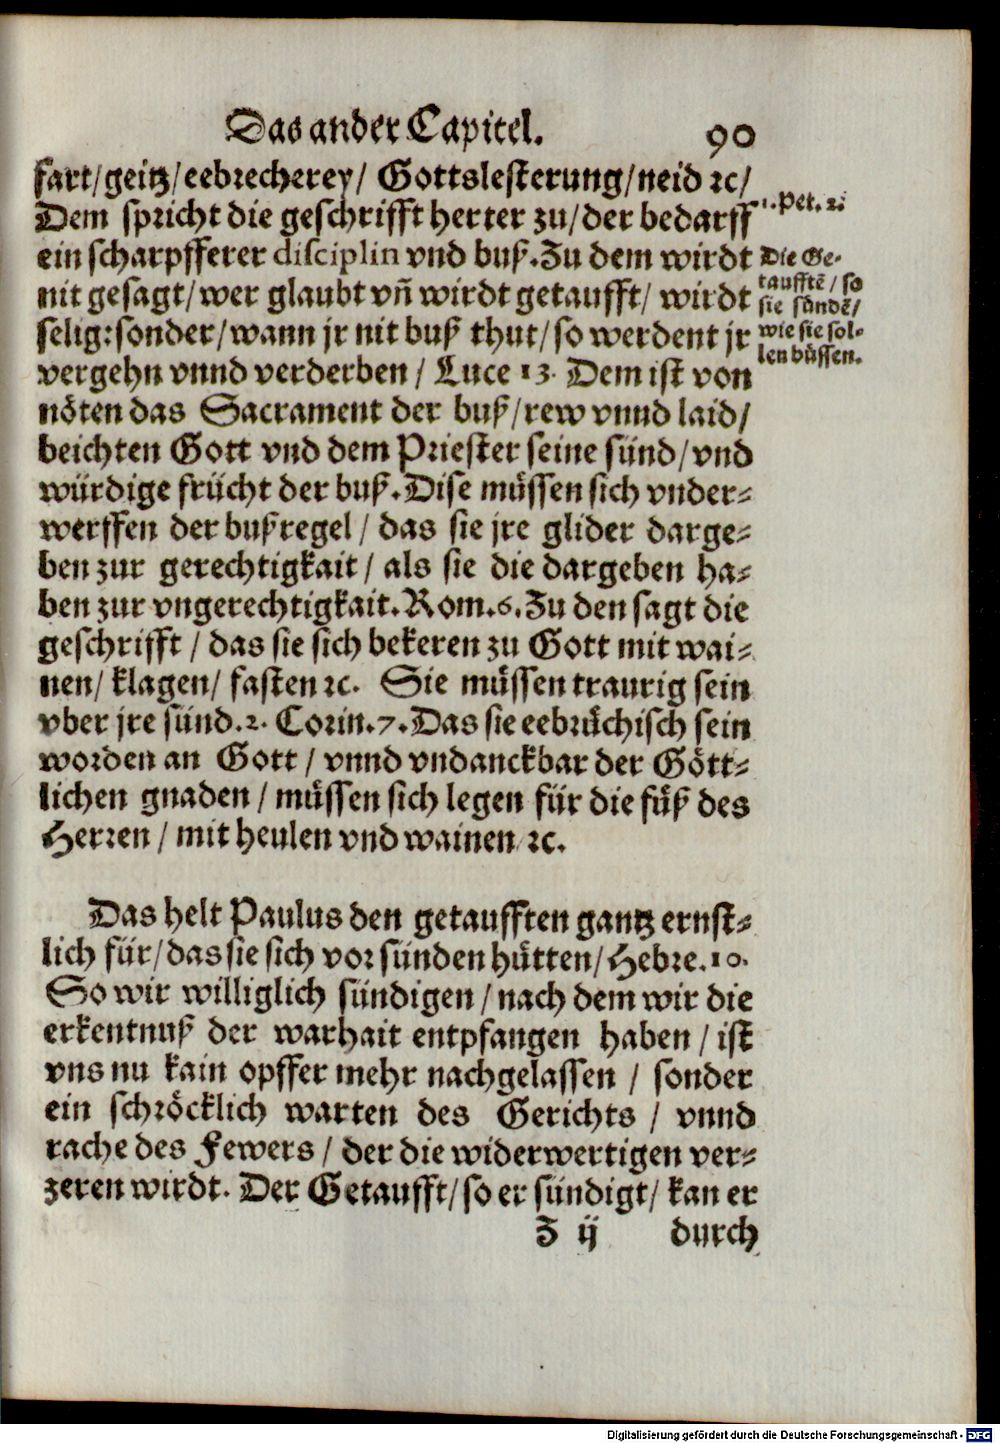 Das ander Capitel. 90
fart/geitz/eebrecherey/ Gottslesterung/neid ꝛc/
Dem spricht die geschrifft herter zu/der bedarff
ein scharpfferer disciplin vnd buß. Zu dem wirdt
nit gesagt/wer glaubt vñ wirdt getaufft/ wirdt
selig: sonder/wann jr nit buß thut/so werdent jr
vergehn vnnd verderben/ Luce 13. Dem ist von
nöten das Sacrament der buß/rew vnnd laid/
beichten Gott vnd dem Priester seine sünd/vnd
würdige frücht der buß. Dise müssen sich vnder-
werffen der bußregel/ das sie jre glider darge-
ben zur gerechtigkait/ als sie die dargeben ha-
ben zur vngerechtigkait. Rom. 6. Zu den sagt die
geschrifft/ das sie sich bekeren zu Gott mit wai-
nen/ klagen/ fasten ꝛc. Sie müssen traurig sein
vber jre sünd. 2. Corin. 7. Das sie eebrüchisch sein
worden an Gott/ vnnd vndanckbar der Gött-
lichen gnaden/ müssen sich legen für die füß des
Herren/ mit heulen vnd wainen ꝛc.
1. Pet. 2.
Die Ge-
taufftē/ so
sie sündē/
wie sie sol-
len büssen.
Das helt Paulus den getaufften gantz ernst-
lich für/das sie sich vor sünden hütten/Hebre. 10.
So wir williglich sündigen/nach dem wir die
erkentnuß der warhait entpfangen haben/ ist
vns nu kain opffer mehr nachgelassen/ sonder
ein schröcklich warten des Gerichts/ vnnd
rache des Fewers/ der die widerwertigen ver-
zeren wirdt. Der Getaufft/so er sündigt/ kan er
Z ij durch
Digitalisierung gefördert durch die Deutsche Forschungsgemeinschaft - DFG